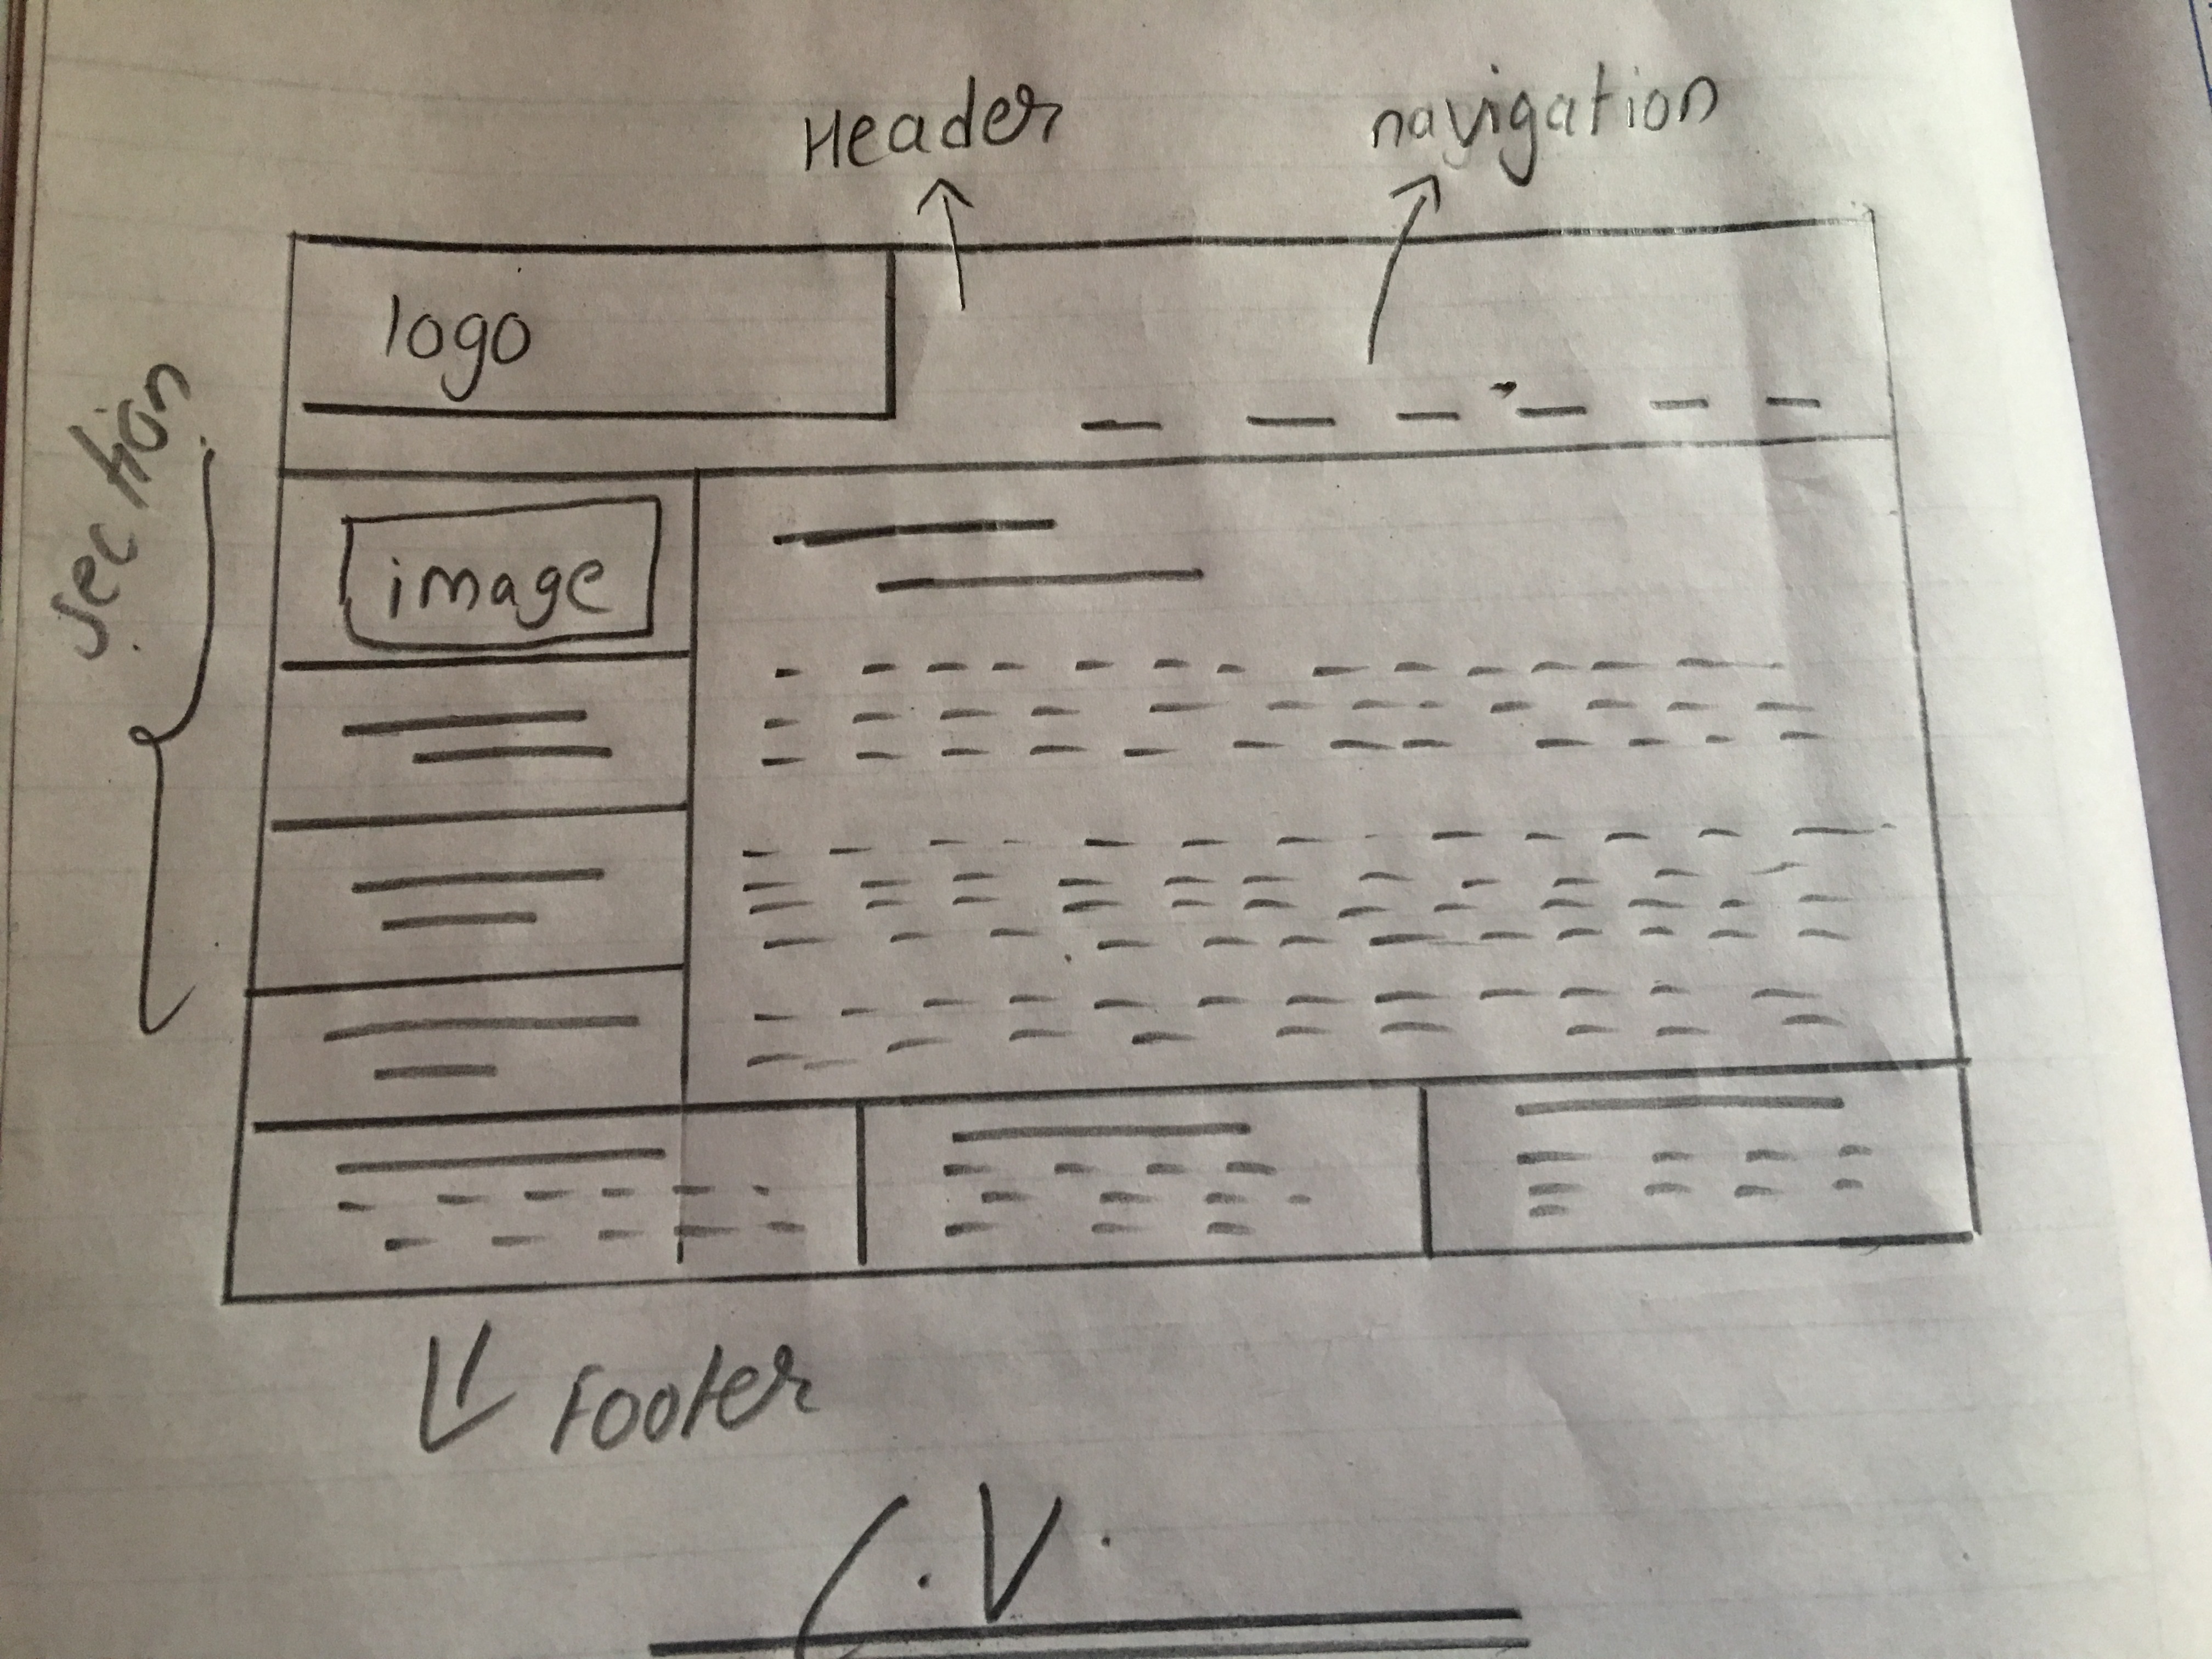 Header
navigation
logo
section
image
Footer
C.V.